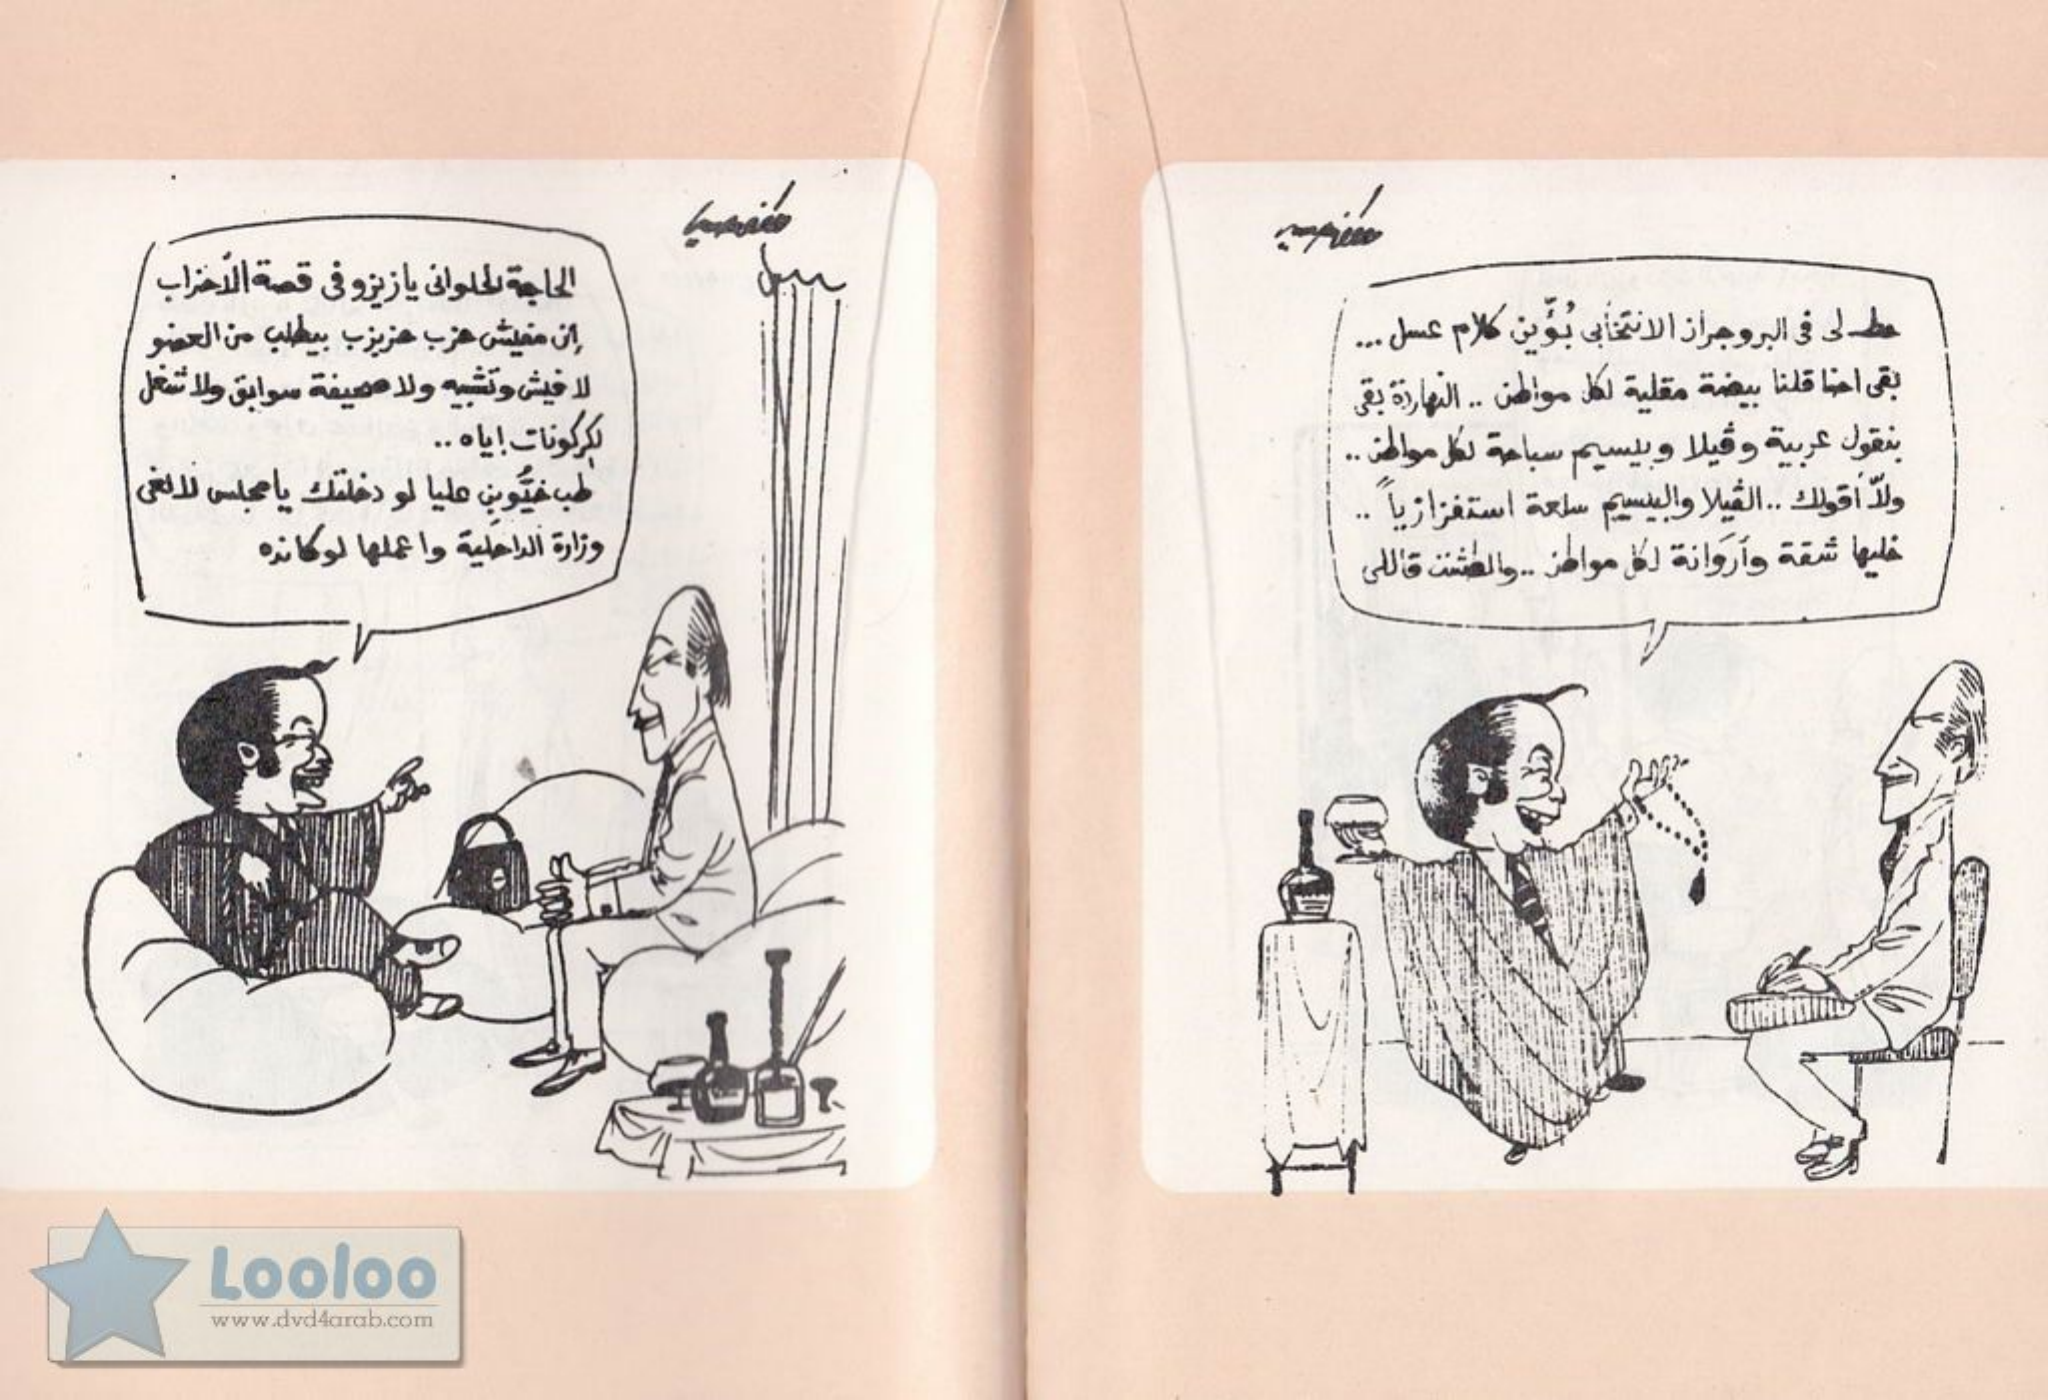 حطـ لى فى البروجراز الانتخابى بُؤّين كلام عسل ...
بقى احنا قلنا بيضة مقلية لكل مواطن .. النهاردة بقى
بنقول عربية وڤيلا وبيسيم سباحة لكل مواطن ..
ولاّ أقولك .. الڤيلا والبيسيم سلعة استفزازياً ..
خليها شقة وأروانة لكل مواطن .. والطشت قاللى
الحاجة الحلوانى يا زيزو فى قصة الأحزاب
إن مفيش حزب حزيزب بيطلب من العضو
لا فيش وتشبيه ولا صحيفة سوابق ولا شغل
الكركونات إياه ..
طب خيُّوبن عليا لو دخلتك يا مجلس لالغى
وزارة الداخلية واعملها لوكانده
Looloo
www.dvd4arab.com